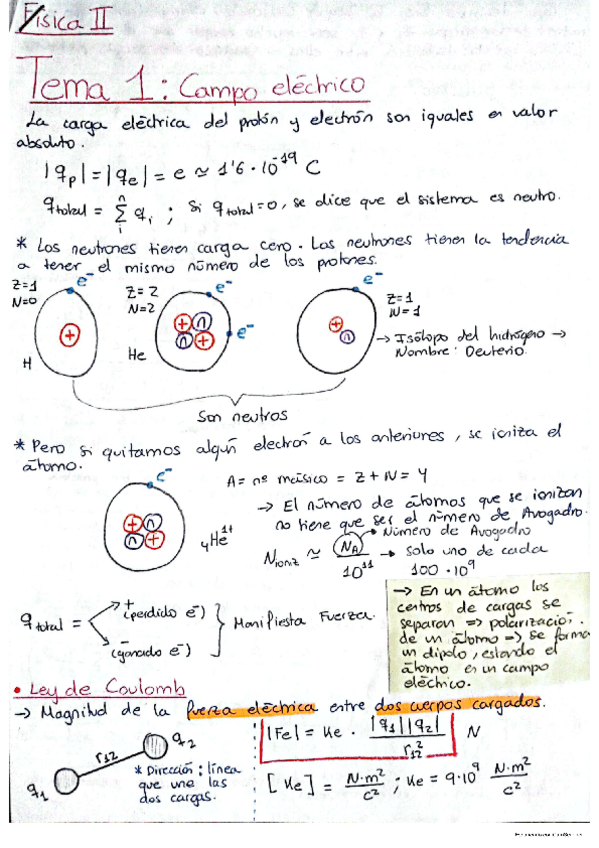 Física II
Tema 1: Campo eléctrico
La carga eléctrica del protón y electrón son iguales en valor
absoluto.
|qp| = |qe| = e ≃ 1'6 · 10⁻¹⁹ C
qtotal = Σ qi ; Si qtotal = 0, se dice que el sistema es neutro.
* Los neutrones tienen carga cero. Las neutrones tienen la tendencia
a tener el mismo número de los protones.
Z=1
N=0
e⁻
+
H
Z=2
N=2
e⁻
+ n
n +
e⁻
He
e⁻
+
n
Z=1
N=1
→ Isótopo del hidrógeno →
Nombre: Deuterio.
Son neutros
* Pero si quitamos algún electrón a los anteriores, se ioniza el
átomo.
e⁻
+ n
n +
₄He¹⁺
A = nº másico = Z + N = 4
→ El número de átomos que se ionizan
no tiene que ser el número de Avogadro.
Número de Avogadro
Nioniz ≃ NA / 10¹¹ → Solo uno de cada
100 · 10⁹
qtotal = + (perdido e⁻)
- (ganado e⁻)
Manifiesta Fuerza.
→ En un átomo los
centros de cargas se
separan => polarización.
de un átomo => se forma
un dipolo, estando el
átomo en un campo
eléctrico.
• Ley de Coulomb
→ Magnitud de la fuerza eléctrica entre dos cuerpos cargados.
q1
r12
q2
* Dirección: línea
que une las
dos cargas.
|Fe| = Ke · |q1||q2| / r12² N
[Ke] = N·m² / C² ; Ke = 9·10⁹ N·m² / C²